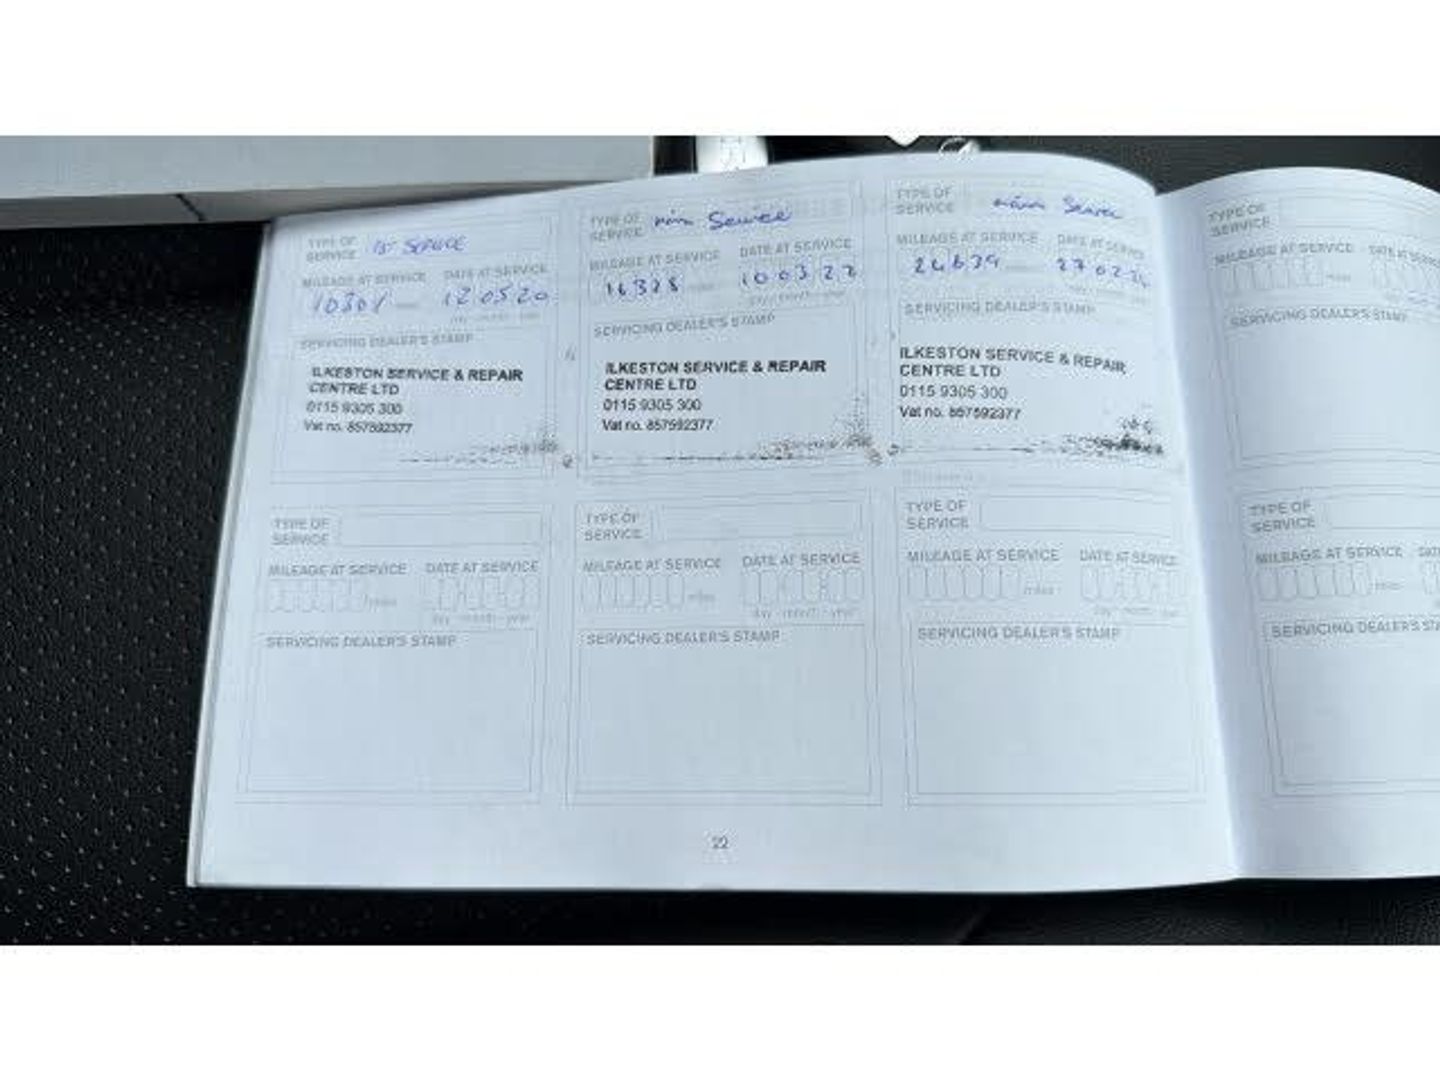 TYPE OF SERVICE 1st SERVICE
MILEAGE AT SERVICE DATE AT SERVICE
10308 miles 12 05 20
day - month - year
SERVICING DEALER'S STAMP
ILKESTON SERVICE & REPAIR
CENTRE LTD
0115 9305 300
Vat no. 857592377
TYPE OF SERVICE Service
MILEAGE AT SERVICE DATE AT SERVICE
16328 10 03 22
day - month - year
SERVICING DEALER'S STAMP
ILKESTON SERVICE & REPAIR
CENTRE LTD
0115 9305 300
Vat no. 857592377
TYPE OF SERVICE Service
MILEAGE AT SERVICE DATE AT SERVICE
27 02 24
SERVICING DEALER'S STAMP
ILKESTON SERVICE & REPAIR
CENTRE LTD
0115 9305 300
Vat no. 857592377
TYPE OF
SERVICE
MILEAGE AT SERVICE DATE AT SERVICE
miles day - month - year
SERVICING DEALER'S STAMP
TYPE OF
SERVICE
MILEAGE AT SERVICE DATE AT SERVICE
miles day - month - year
SERVICING DEALER'S STAMP
TYPE OF
SERVICE
MILEAGE AT SERVICE DATE AT SERVICE
miles day - month - year
SERVICING DEALER'S STAMP
22
TYPE OF
SERVICE
MILEAGE AT SERVICE
miles
SERVICING DEALER'S STAMP
TYPE OF
SERVICE
MILEAGE AT SERVICE
miles
SERVICING DEALER'S